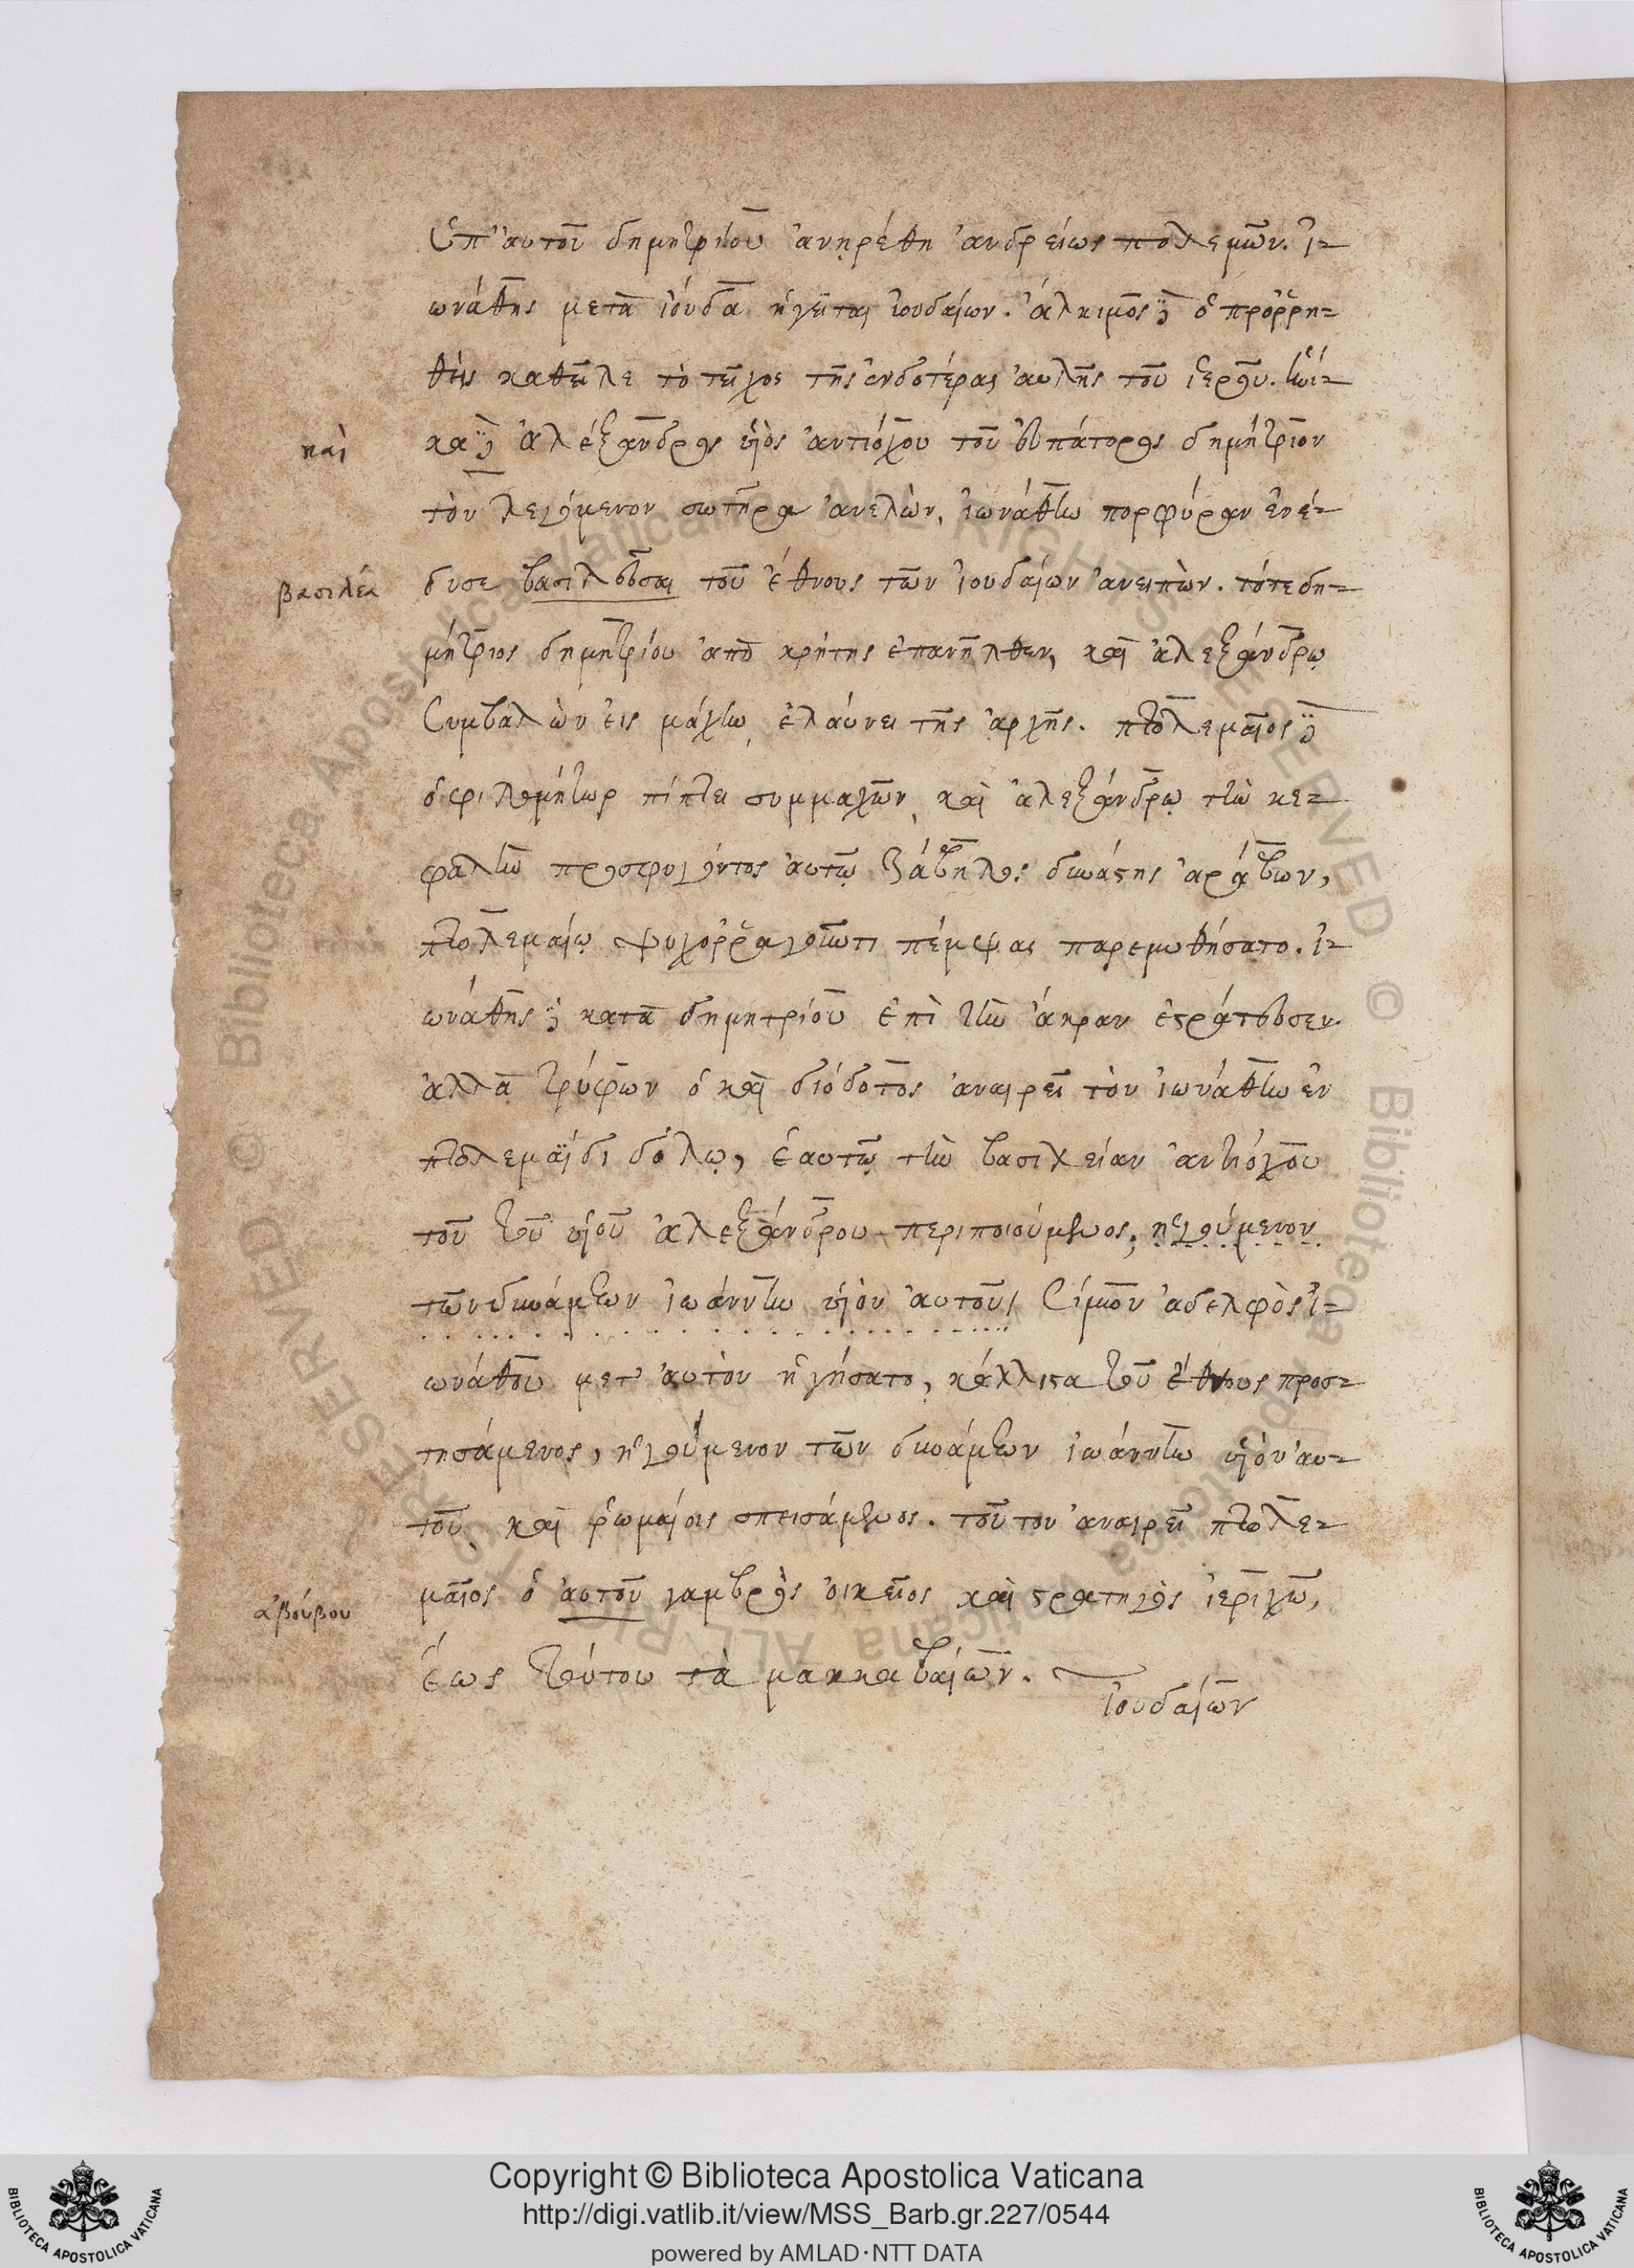 ὑπ' αὐτοῦ δημητρίου ἀνῃρέθη ἀνδρείως πολεμῶν. ἰ-
ωνάθης μετὰ ἰούδα ἡγεῖται ἰουδαίων. ἄλκιμος δὲ ὁ προῤῥη-
θεὶς καθεῖλε τὸ τεῖχος τῆς ἐνδοτέρας αὐλῆς τοῦ ἱεροῦ.
καὶ
κα δὲ ἀλέξανδρος υἱὸς ἀντιόχου τοῦ εὐπάτορος δημήτριον
τὸν λεγόμενον σωτῆρα ἀνελὼν, ἰωνάθην πορφύραν ἐνέ-
βασιλέα
δυσε βασιλεῦσαι τοῦ ἔθνους τῶν ἰουδαίων ἀνειπὼν. τότε δη-
μήτριος δημητρίου ἀπὸ κρήτης ἐπανῆλθεν, καὶ ἀλεξάνδρῳ
συμβαλὼν εἰς μάχην, ἐλαύνει τῆς ἀρχῆς. πτολεμαῖος δὲ
ὁ φιλομήτωρ πίπτει συμμαχῶν, καὶ ἀλεξάνδρῳ τὴν κε-
φαλὴν προσφυγόντος αὐτῷ ζάβηλος δυνάστης ἀράβων,
πτολεμαίῳ ψυχοῤῥαγοῦντι πέμψας παρεμυθήσατο. ἰ-
ωνάθης δὲ κατὰ δημητρίου ἐπὶ τὴν ἄκραν ἐστράτευσεν.
ἀλλὰ τρύφων ὁ καὶ διόδοτος ἀναιρεῖ τὸν ἰωνάθην ἐν
πτολεμαΐδι δόλῳ, ἑαυτῷ τὴν βασιλείαν ἀντιόχου
τοῦ τοῦ υἱοῦ ἀλεξάνδρου περιποιούμενος, ἡγούμενον
τῶν δυνάμεων ἰωάννην υἱὸν αὐτοῦ, σίμων ἀδελφὸς ἰ-
ωνάθου μετ' αὐτὸν ἡγήσατο, κάλλιστα τοῦ ἔθνους προσ-
τησάμενος, ἡγούμενον τῶν δυνάμεων ἰωάννην υἱὸν αὐ-
τοῦ, καὶ ῥωμαίοις σπεισάμενος. τοῦτον ἀναιρεῖ πτολε-
ἀβούβου
μαῖος ὁ αὐτοῦ γαμβρὸς οἰκεῖος καὶ στρατηγὸς ἱεριχῶ,
ἕως τούτου τὰ μακκαβαίων.
ἰουδαίων
Copyright © Biblioteca Apostolica Vaticana
http://digi.vatlib.it/view/MSS_Barb.gr.227/0544
powered by AMLAD·NTT DATA
BIBLIOTECA APOSTOLICA VATICANA
BIBLIOTECA APOSTOLICA VATICANA